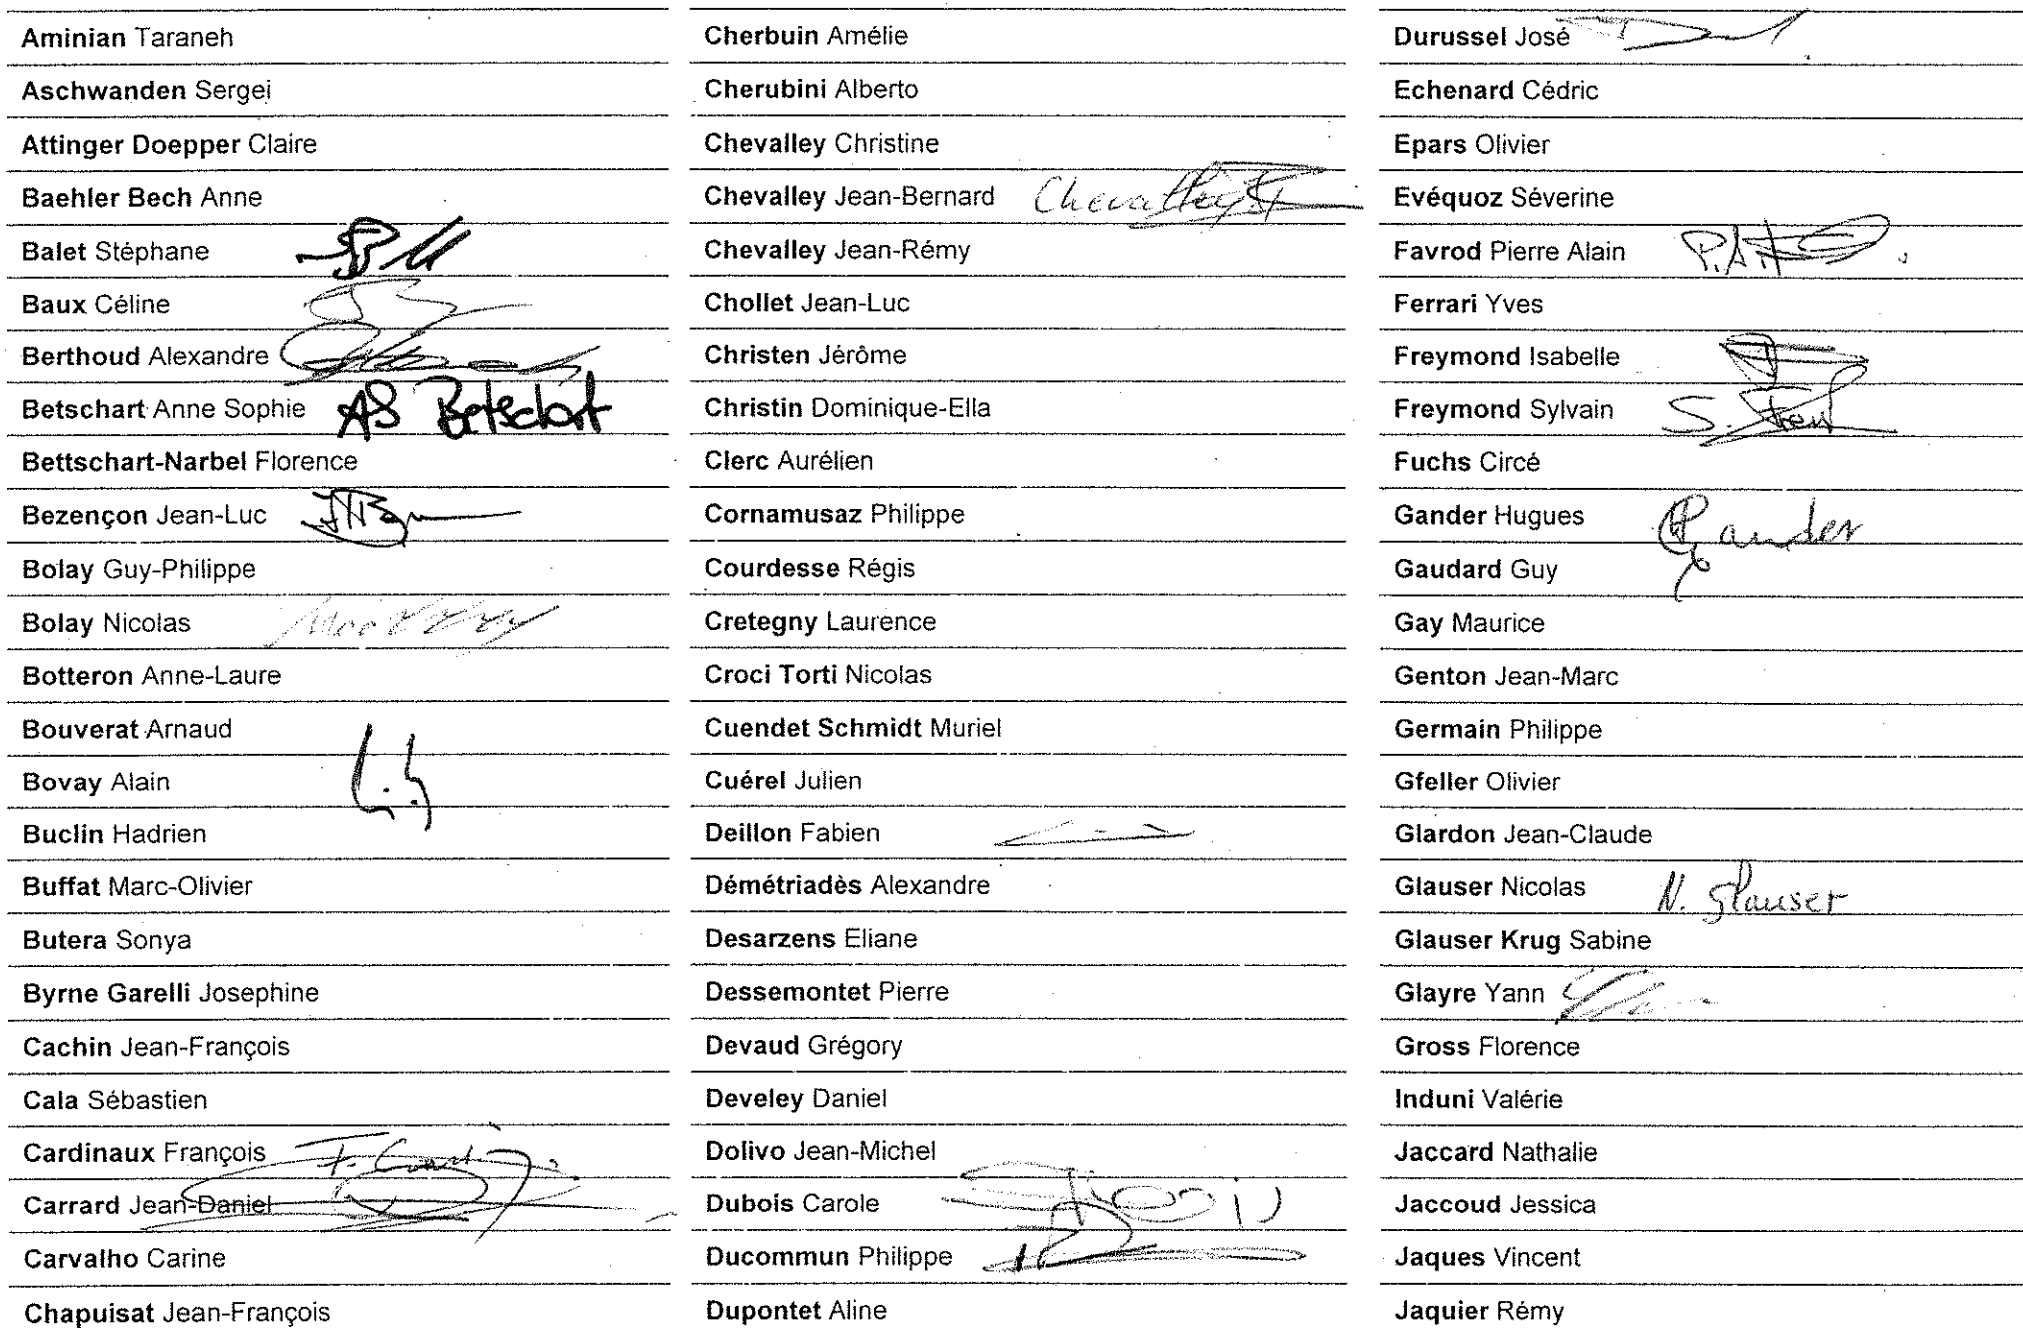 Aminian Taraneh
Aschwanden Sergei
Attinger Doepper Claire
Baehler Bech Anne
Balet Stéphane
Baux Céline
Berthoud Alexandre
Betschart Anne Sophie AS Betschart
Bettschart-Narbel Florence
Bezençon Jean-Luc
Bolay Guy-Philippe
Bolay Nicolas
Botteron Anne-Laure
Bouverat Arnaud
Bovay Alain
Buclin Hadrien
Buffat Marc-Olivier
Butera Sonya
Byrne Garelli Josephine
Cachin Jean-François
Cala Sébastien
Cardinaux François
Carrard Jean-Daniel
Carvalho Carine
Chapuisat Jean-François
Cherbuin Amélie
Cherubini Alberto
Chevalley Christine
Chevalley Jean-Bernard Chevalley
Chevalley Jean-Rémy
Chollet Jean-Luc
Christen Jérôme
Christin Dominique-Ella
Clerc Aurélien
Cornamusaz Philippe
Courdesse Régis
Cretegny Laurence
Croci Torti Nicolas
Cuendet Schmidt Muriel
Cuérel Julien
Deillon Fabien
Démétriadès Alexandre
Desarzens Eliane
Dessemontet Pierre
Devaud Grégory
Develey Daniel
Dolivo Jean-Michel
Dubois Carole
Ducommun Philippe
Dupontet Aline
Durussel José
Echenard Cédric
Epars Olivier
Evéquoz Séverine
Favrod Pierre Alain
Ferrari Yves
Freymond Isabelle
Freymond Sylvain
Fuchs Circé
Gander Hugues Gander
Gaudard Guy
Gay Maurice
Genton Jean-Marc
Germain Philippe
Gfeller Olivier
Glardon Jean-Claude
Glauser Nicolas N. Glauser
Glauser Krug Sabine
Glayre Yann
Gross Florence
Induni Valérie
Jaccard Nathalie
Jaccoud Jessica
Jaques Vincent
Jaquier Rémy